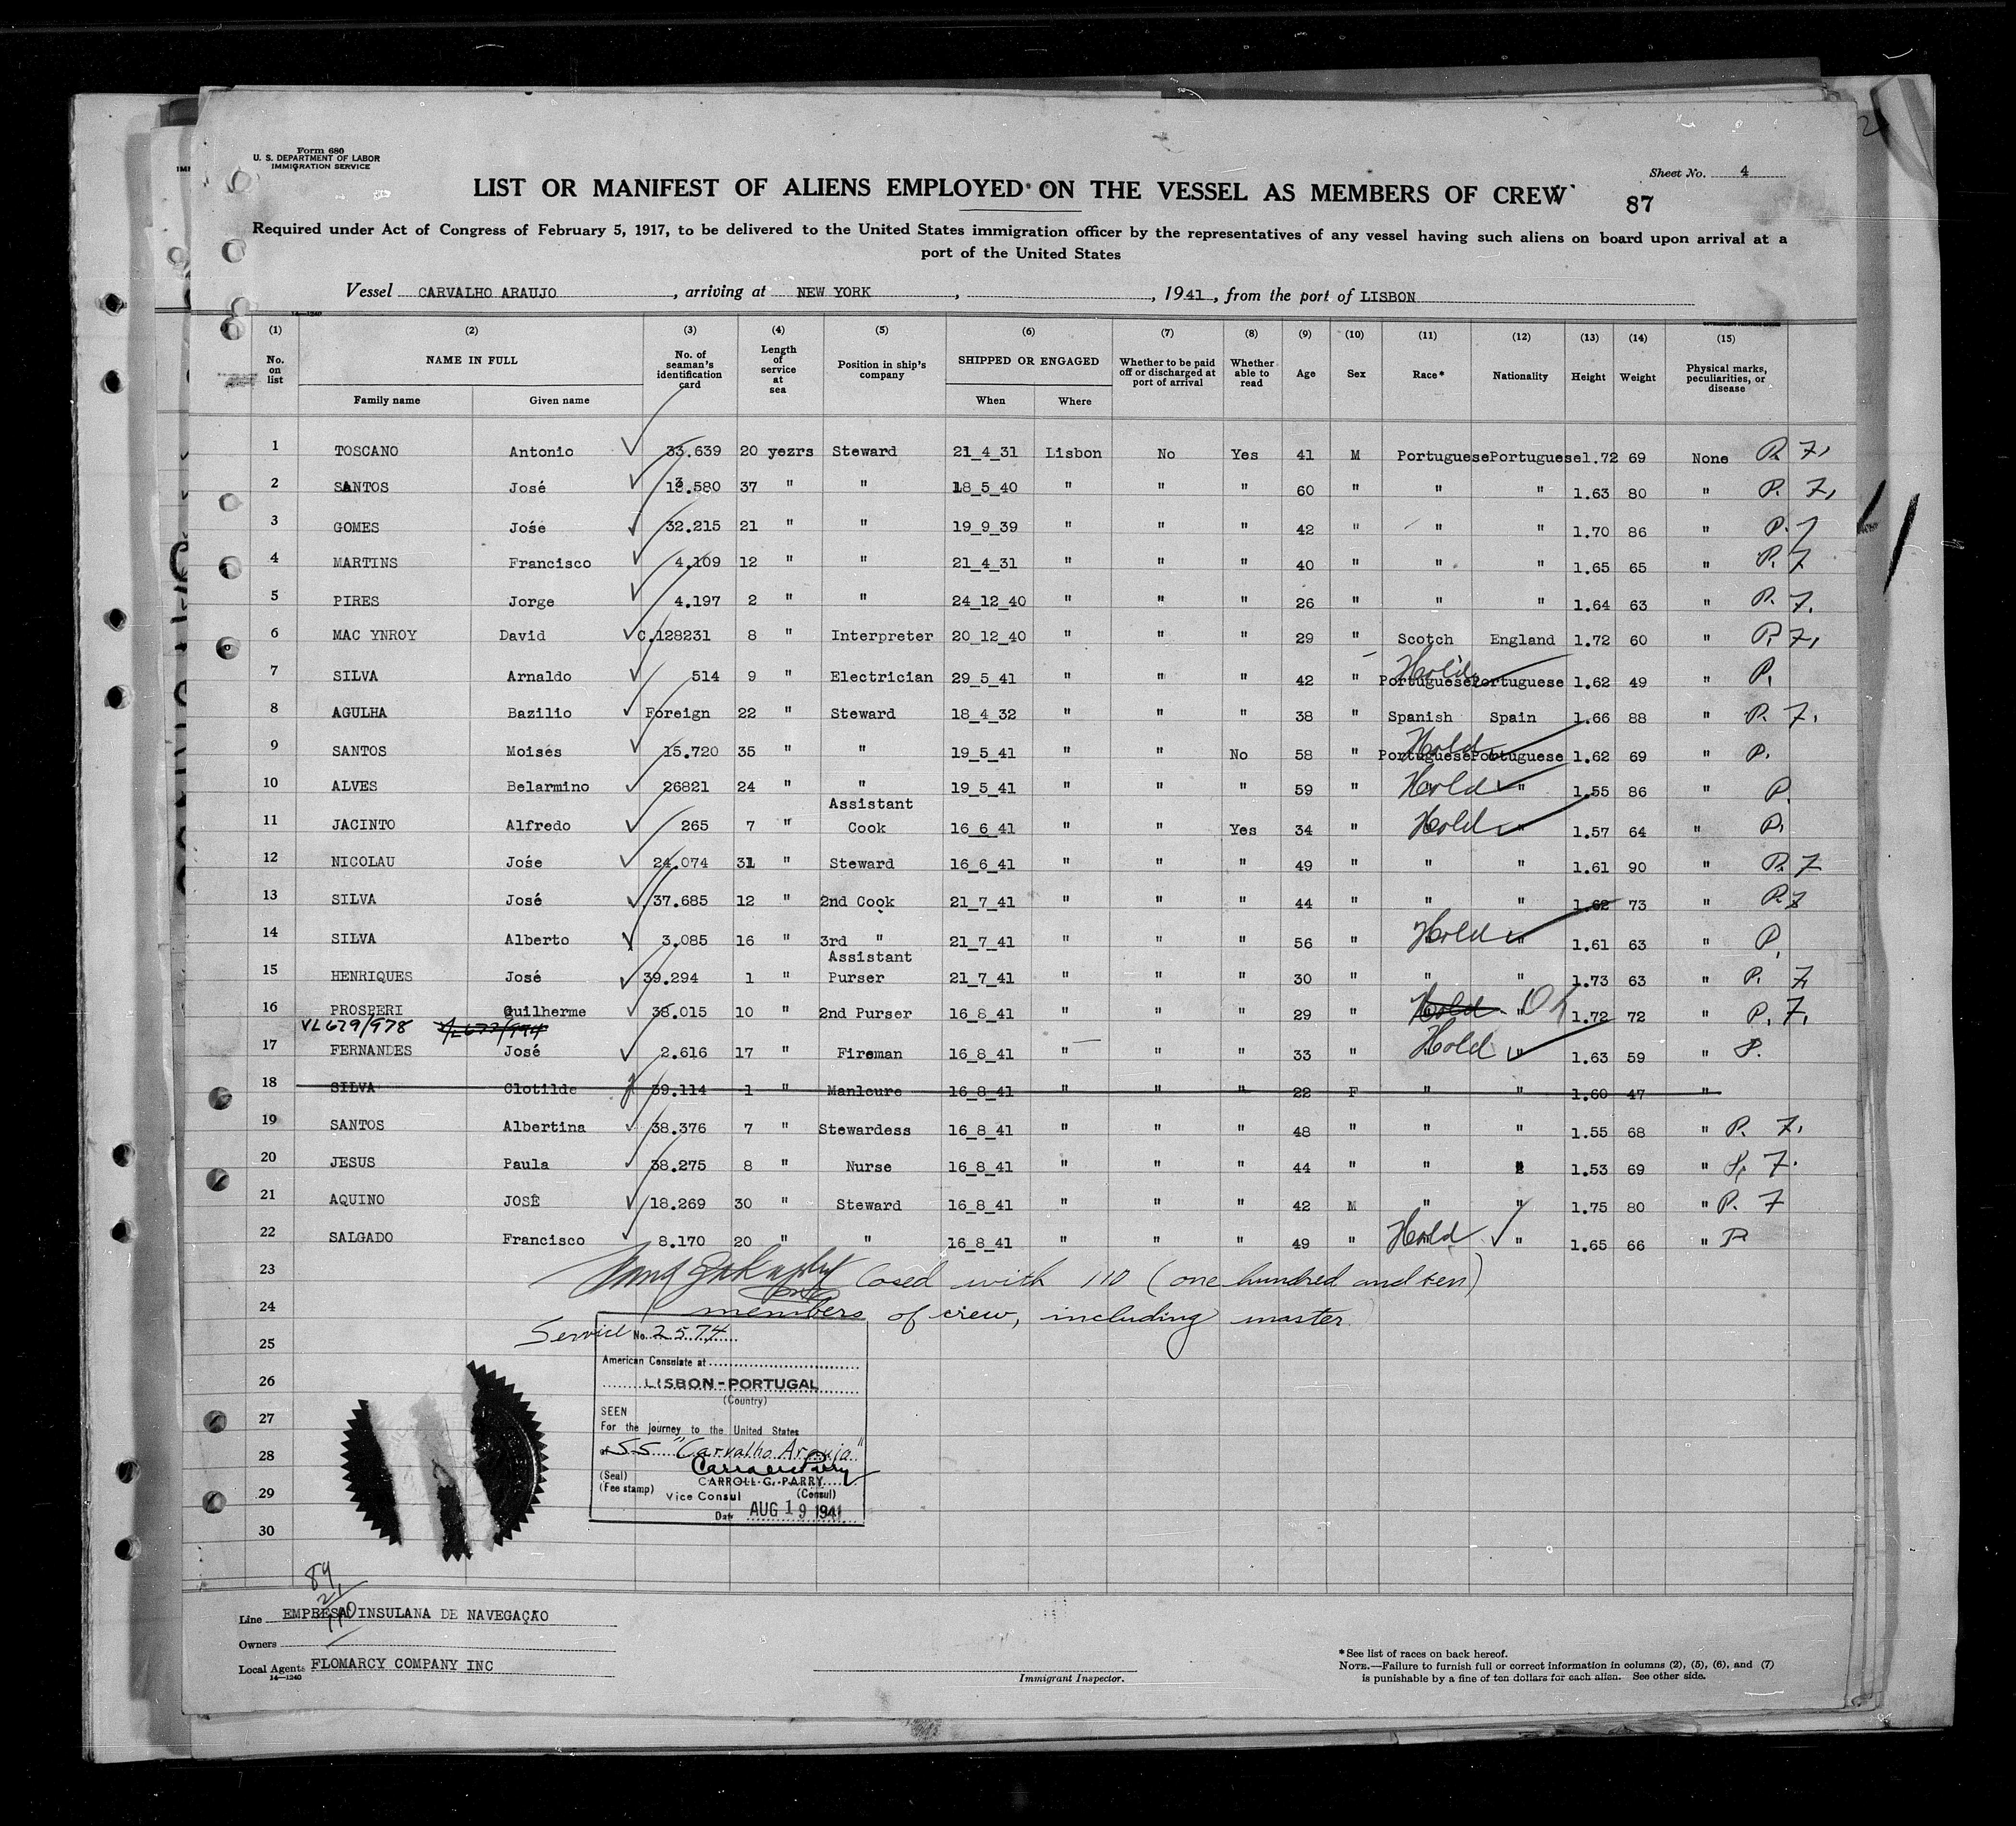 Form 680
U. S. DEPARTMENT OF LABOR
IMMIGRATION SERVICE
Sheet No. 4
LIST OR MANIFEST OF ALIENS EMPLOYED ON THE VESSEL AS MEMBERS OF CREW
87
Required under Act of Congress of February 5, 1917, to be delivered to the United States immigration officer by the representatives of any vessel having such aliens on board upon arrival at a
port of the United States
Vessel CARVALHO ARAUJO, arriving at NEW YORK, , 1941, from the port of LISBON
(1) (2) (3) (4) (5) (6) (7) (8) (9) (10) (11) (12) (13) (14) (15)
No. on list NAME IN FULL Family name Given name No. of seaman's identification card Length of service at sea Position in ship's company SHIPPED OR ENGAGED When Where Whether to be paid off or discharged at port of arrival Whether able to read Age Sex Race* Nationality Height Weight Physical marks, peculiarities, or disease
1 TOSCANO Antonio 33.639 20 yezrs Steward 21_4_31 Lisbon No Yes 41 M Portuguese Portuguese 1.72 69 None P. 7,
2 SANTOS José 13.580 37 " " 18_5_40 " " " 60 " " " 1.63 80 " P. 7,
3 GOMES Jośe 32.215 21 " " 19_9_39 " " " 42 " " " 1.70 86 " P. 7
4 MARTINS Francisco 4.109 12 " " 21_4_31 " " " 40 " " " 1.65 65 " P. 7
5 PIRES Jorge 4.197 2 " " 24_12_40 " " " 26 " " " 1.64 63 " P. 7.
6 MAC YNROY David C.128231 8 " Interpreter 20_12_40 " " " 29 " Scotch England 1.72 60 " P. 7,
7 SILVA Arnaldo 514 9 " Electrician 29_5_41 " " " 42 " Portuguese Hold Portuguese 1.62 49 " P.
8 AGULHA Bazilio Foreign 22 " Steward 18_4_32 " " " 38 " Spanish Spain 1.66 88 " P. 7.
9 SANTOS Moisés 15.720 35 " " 19_5_41 " " No 58 " Portuguese Hold Portuguese 1.62 69 " P.
10 ALVES Belarmino 26821 24 " " 19_5_41 " " " 59 " Hold " 1.55 86 " P.
11 JACINTO Alfredo 265 7 " Assistant Cook 16_6_41 " " Yes 34 " Hold " 1.57 64 " P.
12 NICOLAU Jośe 24.074 31 " Steward 16_6_41 " " " 49 " " " 1.61 90 " P. 7
13 SILVA José 37.685 12 " 2nd Cook 21_7_41 " " " 44 " " " 1.62 73 " P. 7
14 SILVA Alberto 3.085 16 " 3rd " 21_7_41 " " " 56 " Hold " 1.61 63 " P.
15 HENRIQUES José 39.294 1 " Assistant Purser 21_7_41 " " " 30 " " " 1.73 63 " P. 7
16 PROSPERI Guilherme 38.015 10 " 2nd Purser 16_8_41 " " " 29 " Hold " OK 1.72 72 " P. 7.
VL679/978
17 FERNANDES José 2.616 17 " Fireman 16_8_41 " " " 33 " Hold " 1.63 59 " P.
18 SILVA Clotilde 39.114 1 " Manicure 16_8_41 " " " 22 F " " 1.60 47 "
19 SANTOS Albertina 38.376 7 " Stewardess 16_8_41 " " " 48 " " " 1.55 68 " P. 7.
20 JESUS Paula 38.275 8 " Nurse 16_8_41 " " " 44 " " " 1.53 69 " P. 7.
21 AQUINO JOSÉ 18.269 30 " Steward 16_8_41 " " " 42 M " " 1.75 80 " P. 7
22 SALGADO Francisco 8.170 20 " " 16_8_41 " " " 49 " Hold " 1.65 66 " P
23 Closed with 110 (one hundred and ten)
24 members of crew, including master.
Service No. 2574
25
American Consulate at
26 LISBON-PORTUGAL
(Country)
27 SEEN
For the journey to the United States
28 SS "Carvalho Araujo"
(Seal) CARROLL C. PARRY
(Fee stamp) Vice Consul (Consul)
29
Date AUG 19 1941
30
89
21
110
Line EMPRESA INSULANA DE NAVEGAÇÃO
Owners
Local Agents FLOMARCY COMPANY INC
14—1240
Immigrant Inspector.
*See list of races on back hereof.
NOTE.—Failure to furnish full or correct information in columns (2), (5), (6), and (7)
is punishable by a fine of ten dollars for each alien. See other side.